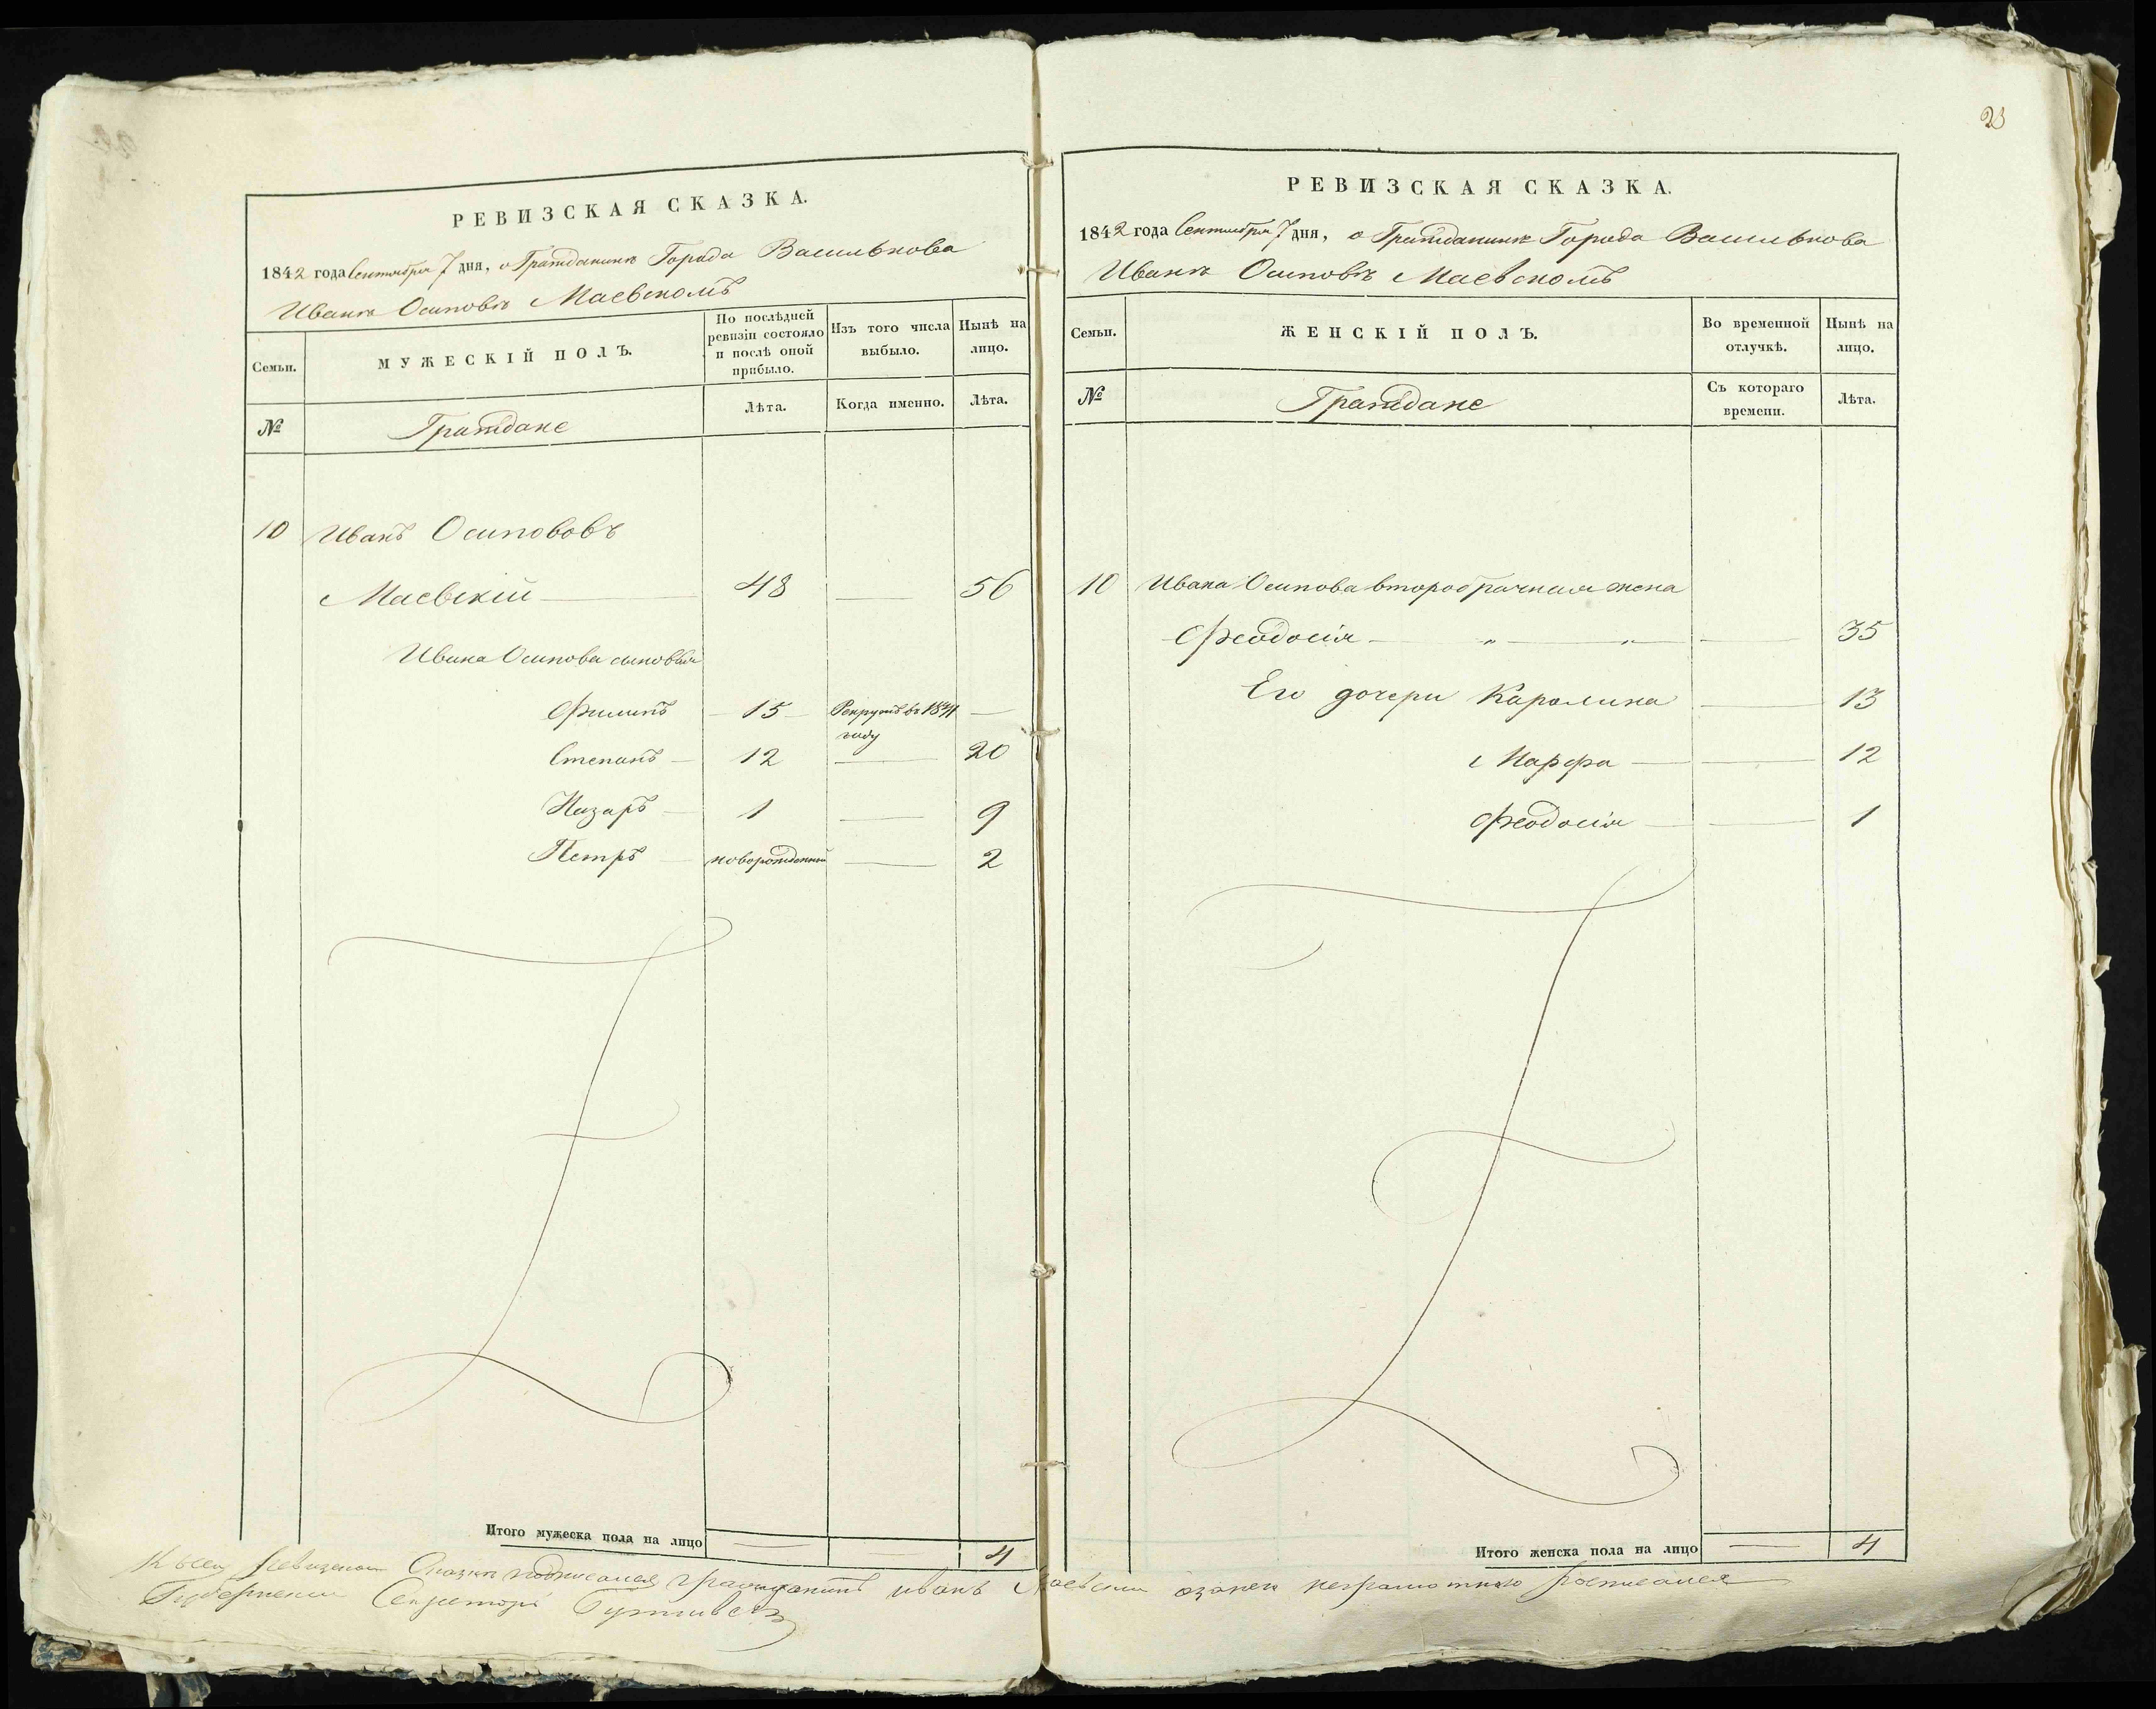 23
РЕВИЗСКАЯ СКАЗКА.
1842 года Сентября 7 дня, о Гражданинѣ Города Василькова
Иванѣ Осиповѣ Маевскомъ
Семьи.
МУЖЕСКІЙ ПОЛЪ.
По послѣдней ревизіи состояло и послѣ оной прибыло.
Изъ того числа выбыло.
Нынѣ на лицо.
№
Граждане
Лѣта.
Когда именно.
Лѣта.
10 Иванъ Осиповъ
Маевскій 48 — 56
Ивана Осипова сыновья
Филипъ 15 Рекрутъ въ 1841 году —
Степанъ 12 — 20
Назаръ 1 — 9
Петръ новорожденный — 2
Итого мужеска пола на лицо — — 4
РЕВИЗСКАЯ СКАЗКА.
1842 года Сентября 7 дня, о Гражданинѣ Города Василькова
Иванѣ Осиповѣ Маевскомъ
Семьи.
ЖЕНСКІЙ ПОЛЪ.
Во временной отлучкѣ.
Нынѣ на лицо.
№
Граждане
Съ котораго времени.
Лѣта.
10 Ивана Осипова второбрачная жена
Феодосія — „ — „ — 35
Его дочери Каролина — 13
Марфа — 12
Феодосія — 1
Итого женска пола на лицо — 4
К сей Ревизской Сказки подписался гражданинъ иванъ Маевскии неграмотнаго росписался
Губернскии Секретарь